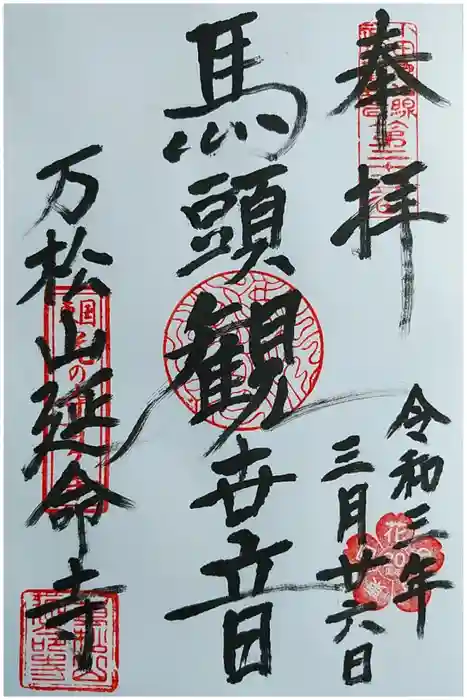 奉拝
令和三年
三月廿六日
馬頭観世音
万松山延命寺